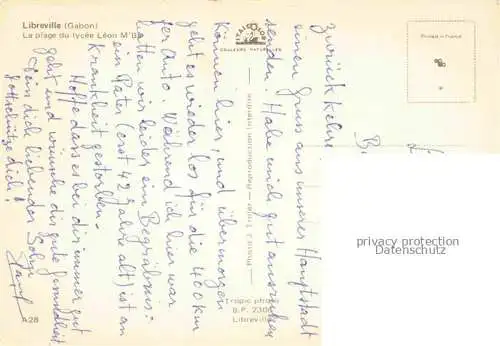 Libreville (Gabon)
La plage du lycée Léon M'Ba
COULEURS NATURELLES
Printed in France
zurück kehre
einen Gruss aus unserer Hauptstadt
senden. Habe mich gut ausruhen
können hier, und übermorgen
geht es wieder los für die 400 km
per Auto. Während ich hier war
hatten wir leider ein Begräbnis:
ein Pater (erst 42 Jahre alt) ist an
Krankheit gestorben.
Hoffe dass es bei dir immer gut
geht und wünsche dir gute Gesundheit
Dein dich liebender Sohn
Gott schütze dich!
Tropic photo
B.P. 230
Libreville
A28
privacy protection
Datenschutz